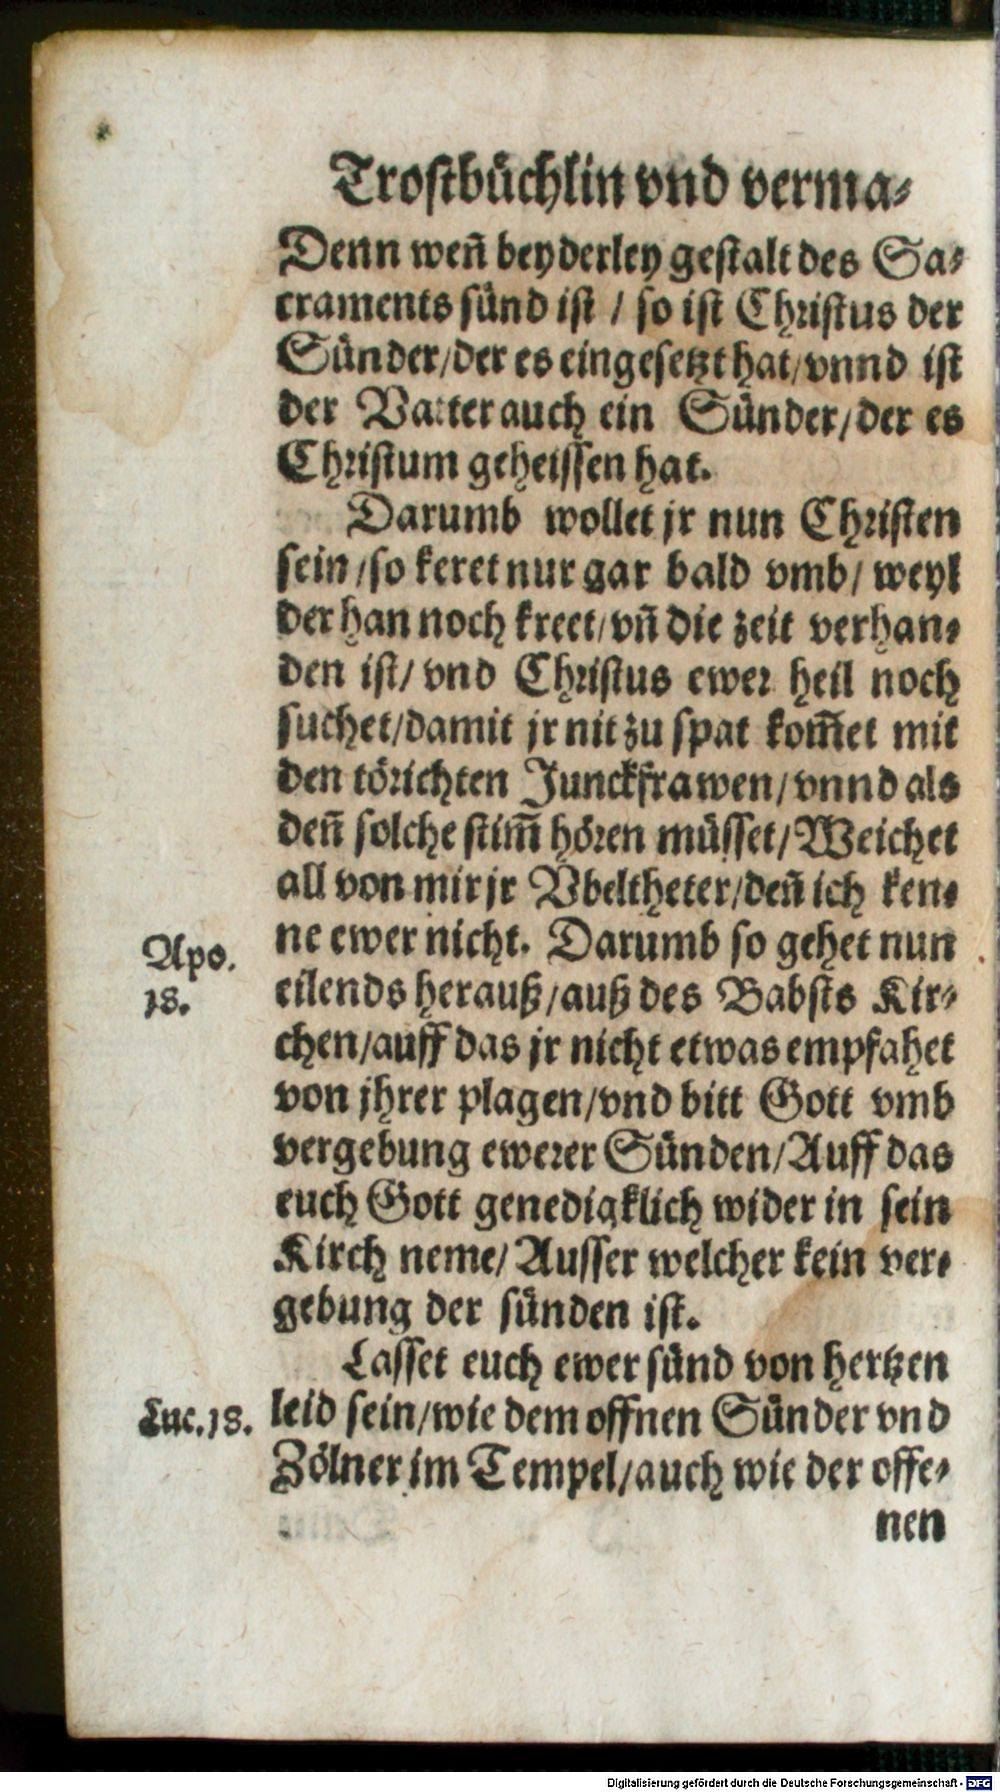 Trostbüchlin vnd verma⸗
Denn weñ beyderley gestalt des Sa⸗
craments sünd ist / so ist Christus der
Sünder/der es eingesetzt hat/vnnd ist
der Vatter auch ein Sünder/der es
Christum geheissen hat.
Darumb wollet jr nun Christen
sein/so keret nur gar bald vmb/ weyl
der han noch kreet/vñ die zeit verhan⸗
den ist/ vnd Christus ewer heil noch
suchet/damit jr nit zu spat kom̃et mit
den törichten Junckfrawen/vnnd als
deñ solche stim̃ hören müsset/Weichet
all von mir jr Vbeltheter/deñ ich ken⸗
ne ewer nicht. Darumb so gehet nun
Apo.
18.
eilends herauß/auß des Babsts Kir⸗
chen/auff das jr nicht etwas empfahet
von jhrer plagen/vnd bitt Gott vmb
vergebung ewerer Sünden/Auff das
euch Gott genedigklich wider in sein
Kirch neme/Ausser welcher kein ver⸗
gebung der sünden ist.
Lasset euch ewer sünd von hertzen
Luc.18.
leid sein/wie dem offnen Sünder vnd
Zölner im Tempel/auch wie der offe⸗
nen
Digitalisierung gefördert durch die Deutsche Forschungsgemeinschaft - DFG